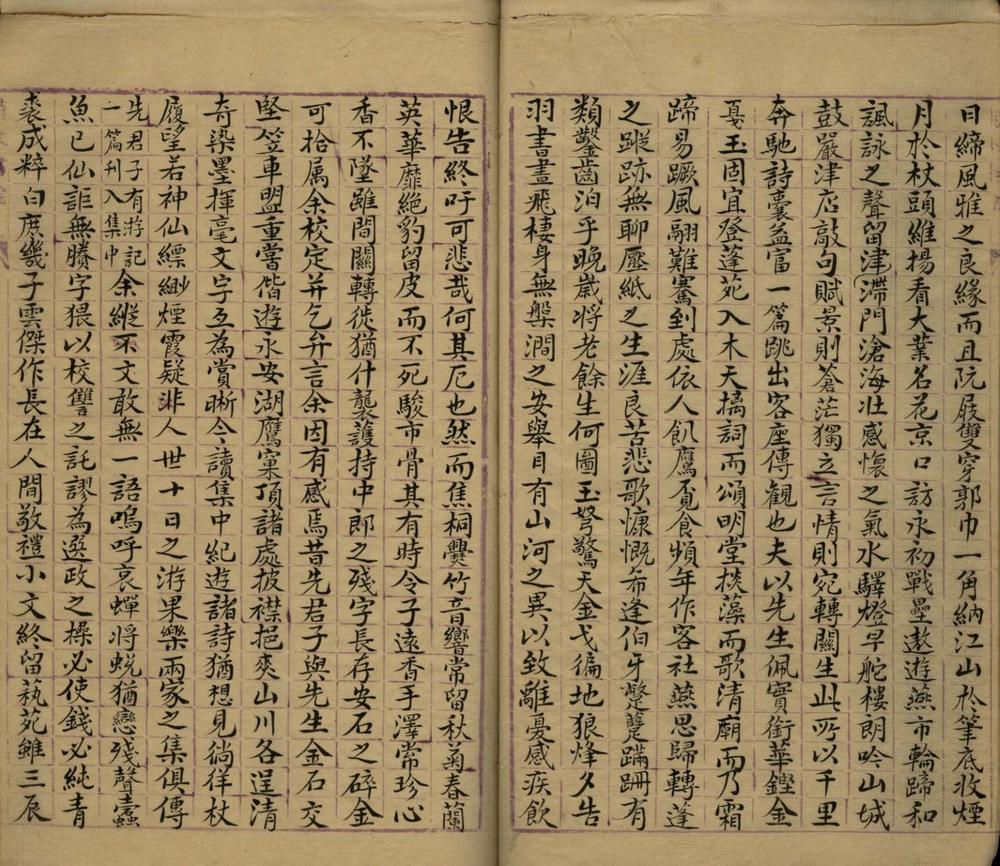 日締風雅之良緣而且阮屐雙穿郭巾一角納江山於筆底收煙
月於杖頭維揚看大業名花京口訪永初戰壘遨遊燕市輪蹄和
諷詠之聲留津滯門滄海壯感懷之氣水驛燈早舵樓朗吟山城
鼓嚴津店敲句賦景則蒼茫獨立言情則宛轉關生此所以千里
奔馳詩囊益富一篇跳出客座傳觀也夫以先生佩實銜華鏗金
戛玉固宜登蓬苑入木天摛詞而頌明堂掞藻而歌清廟而乃霜
蹄易蹶風翮難騫到處依人飢鷹覓食頻年作客社燕思歸轉蓬
之蹤跡無聊壓紙之生涯良苦悲歌慷慨布逢伯牙蹩躠蹣跚有
類鑿齒洎乎晚歲將老餘生何圖玉弩驚天金戈徧地狼烽夕告
羽書晝飛棲身無槃澗之安舉目有山河之異以致離憂感疾飲
恨告終吁可悲哉何其厄也然而焦桐爨竹音響常留秋菊春蘭
英華靡絕豹留皮而不死駿市骨其有時令子遠香手澤常珍心
香不墜雖間關轉徙猶什襲護持中郎之殘字長存安石之碎金
可拾属余校定并乞弁言余因有感焉昔先君子與先生金石交
堅笠車盟重嘗偕遊永安湖鷹窠頂諸處披襟挹爽山川各逞清
奇染墨揮毫文字互為賞晰今讀集中紀遊諸詩猶想見徜徉杖
履望若神仙縹緲煙霞疑非人世十日之游果樂兩家之集俱傳
先君子有游記一篇刊入集中余縱不文敢無一語嗚呼哀蟬將蛻猶戀殘聲蠹
魚已仙詎無賸字猥以校讐之託謬為選政之操必使錢必純青
裘成粹白庶幾子雲傑作長在人間敬禮小文終留蓺苑雖三辰